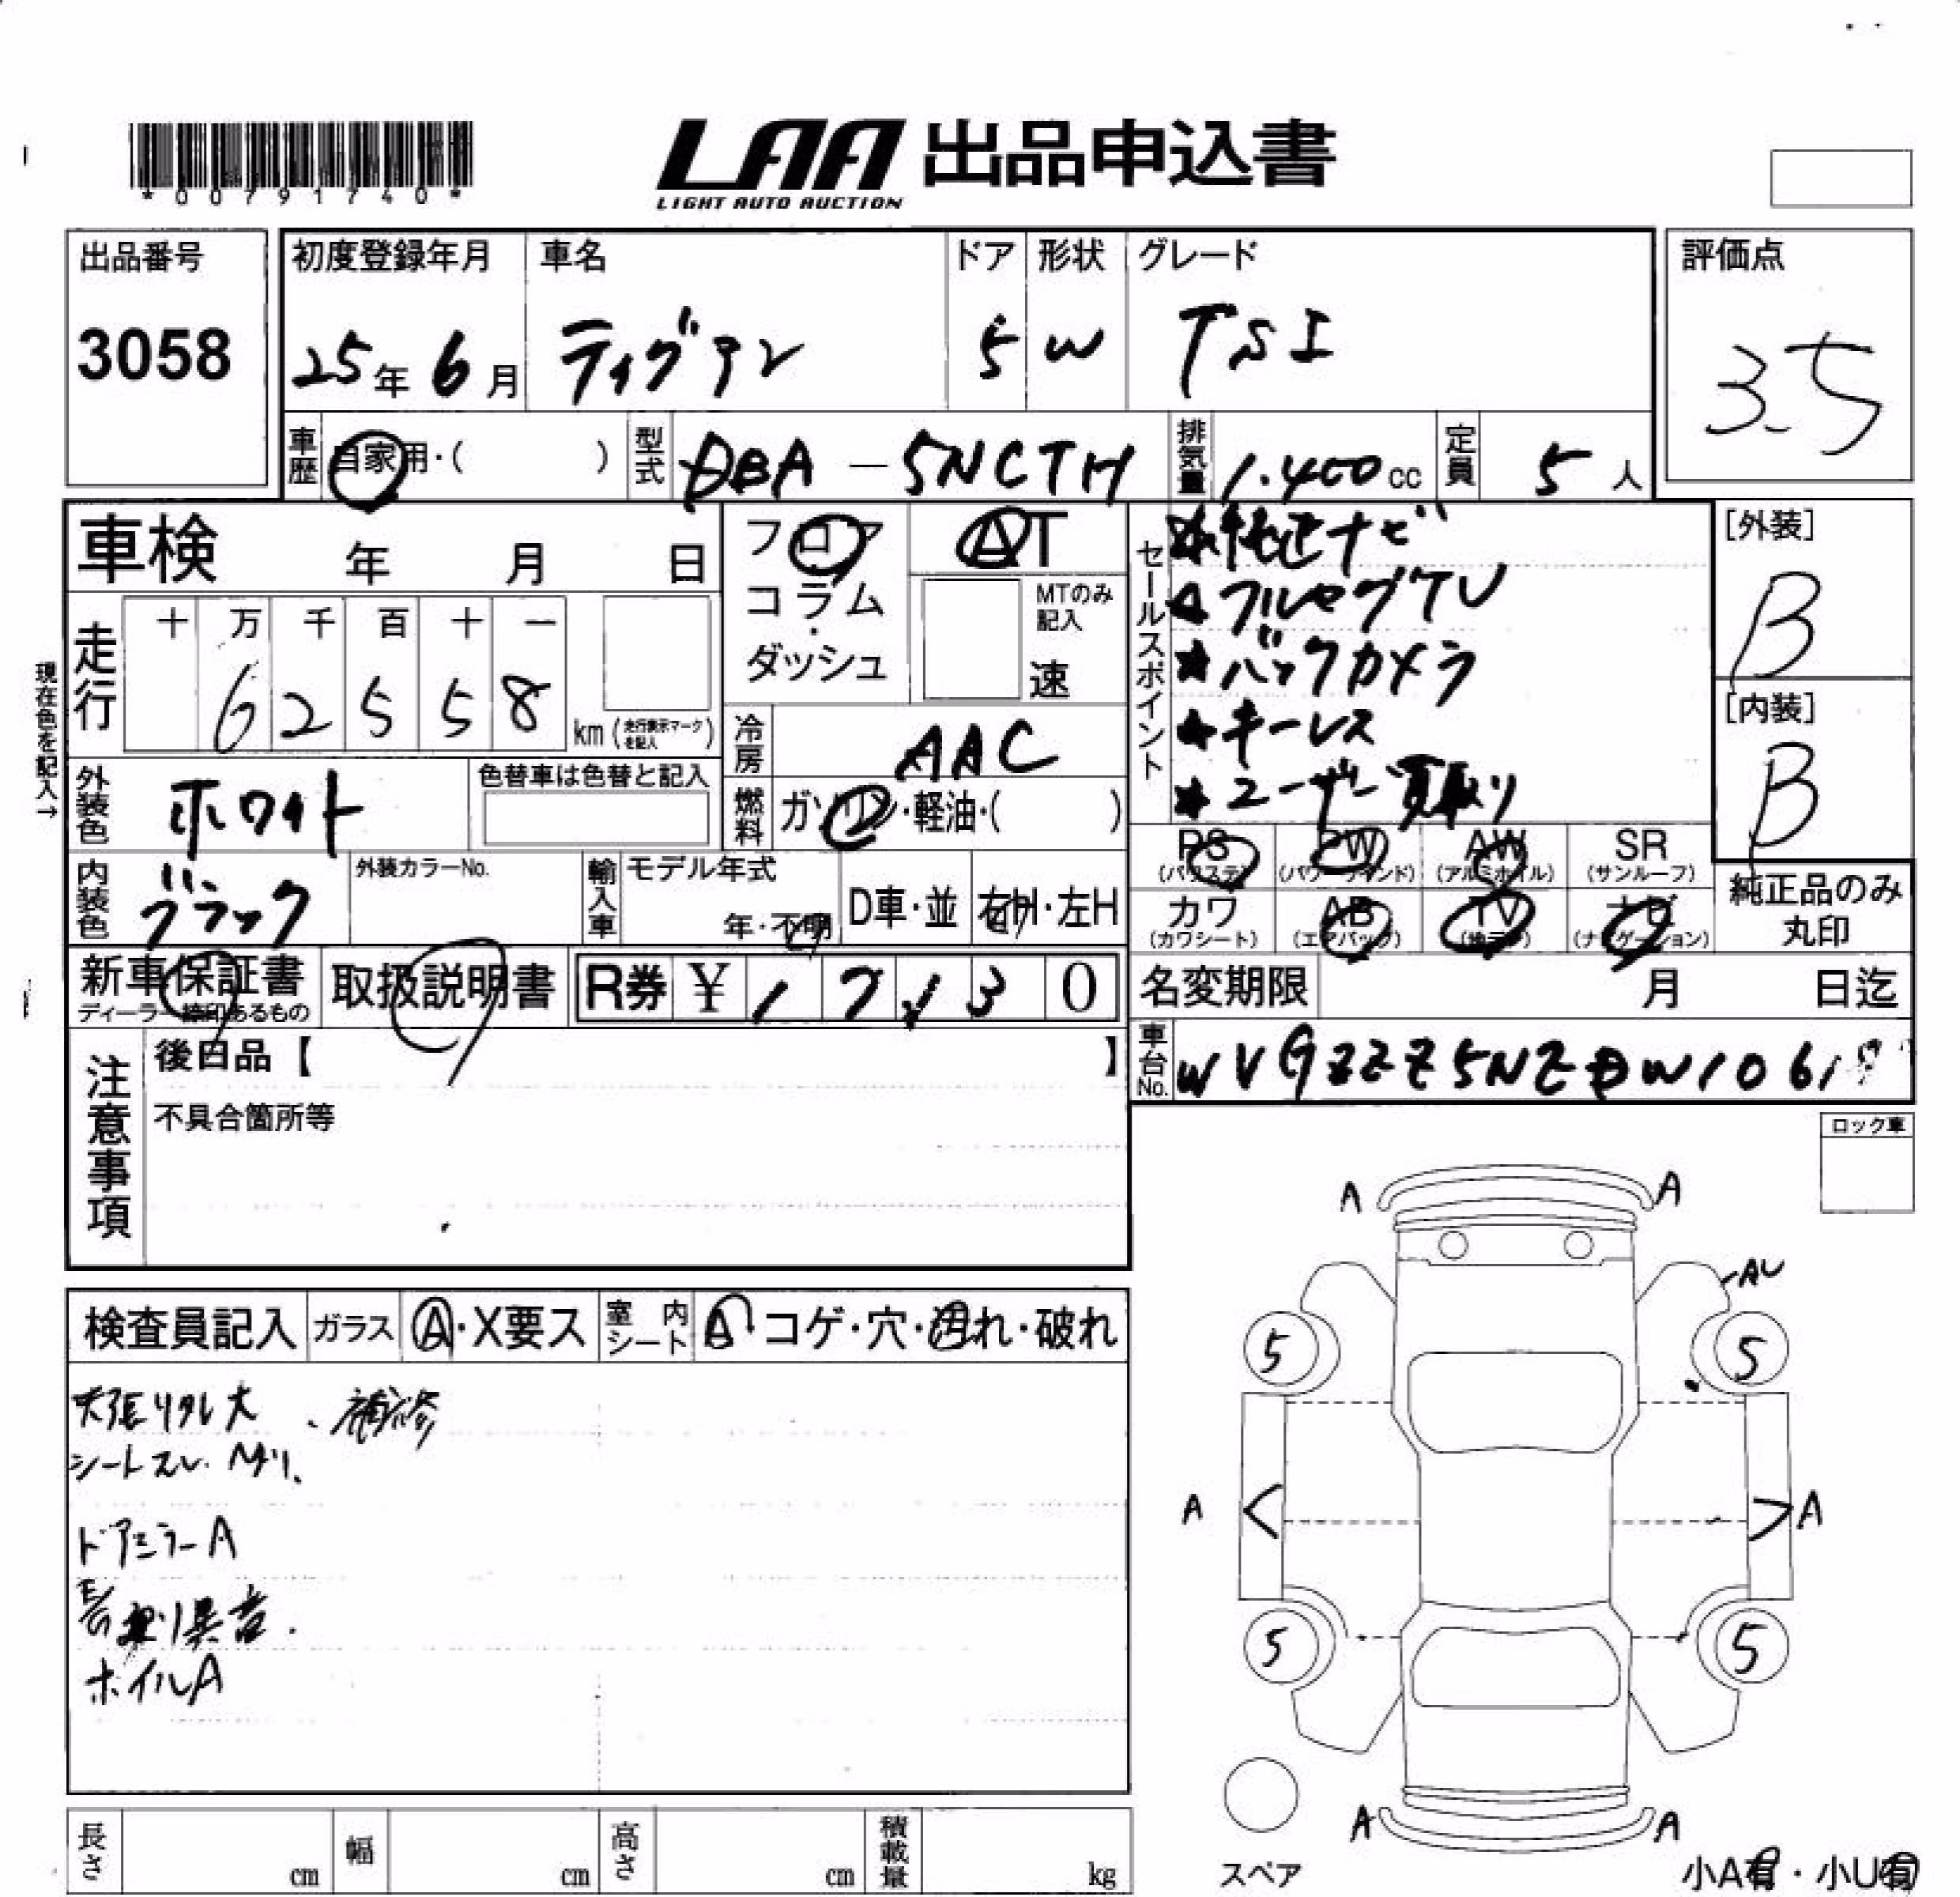 *00791740*
LAA 出品申込書
LIGHT AUTO AUCTION
出品番号
3058
初度登録年月
25年6月
車名
ティグアン
ドア
5
形状
W
グレード
TSI
評価点
3.5
車歴 自家用・( )
型式 DBA-5NCTH
排気量 1.400cc
定員 5人
車検 年 月 日
フロア
コラム・
ダッシュ
AT
MTのみ記入
速
セールスポイント
★純正ナビ
★フルセグTV
★バックカメラ
★キーレス
★ユーザー買取り
[外装]
B
[内装]
B
現在色を記入→
走行
十 万 千 百 十 一
6 2 5 5 8
km(走行表示マークを記入)
冷房 AAC
外装色 ホワイト
色替車は色替と記入
燃料 ガソリン・軽油・( )
内装色 ブラック
外装カラーNo.
輸入車
モデル年式
年・不明
D車・並
右H・左H
PS (パワステ)
PW (パワーウインド)
AW (アルミホイル)
SR (サンルーフ)
カワ (カワシート)
AB (エアバッグ)
TV (地デジ)
ナビ (ナビゲーション)
純正品のみ
丸印
新車保証書
ディーラー捺印あるもの
取扱説明書
R券 ¥ 1 7 1 3 0
名変期限 月 日迄
車台No. WVGZZZ5NZDW1061
注意事項
後日品【 】
不具合箇所等
ロック車
検査員記入
ガラス A・X要ス
室内シート A・コゲ・穴・汚れ・破れ
天張りタレ大、補修
シートスレ
ドアミラーA
異音.
ホイルA
A A
AU
5 5
A A
5 5
A A
スペア
小A有・小U有
長さ cm
幅 cm
高さ cm
積載量 kg